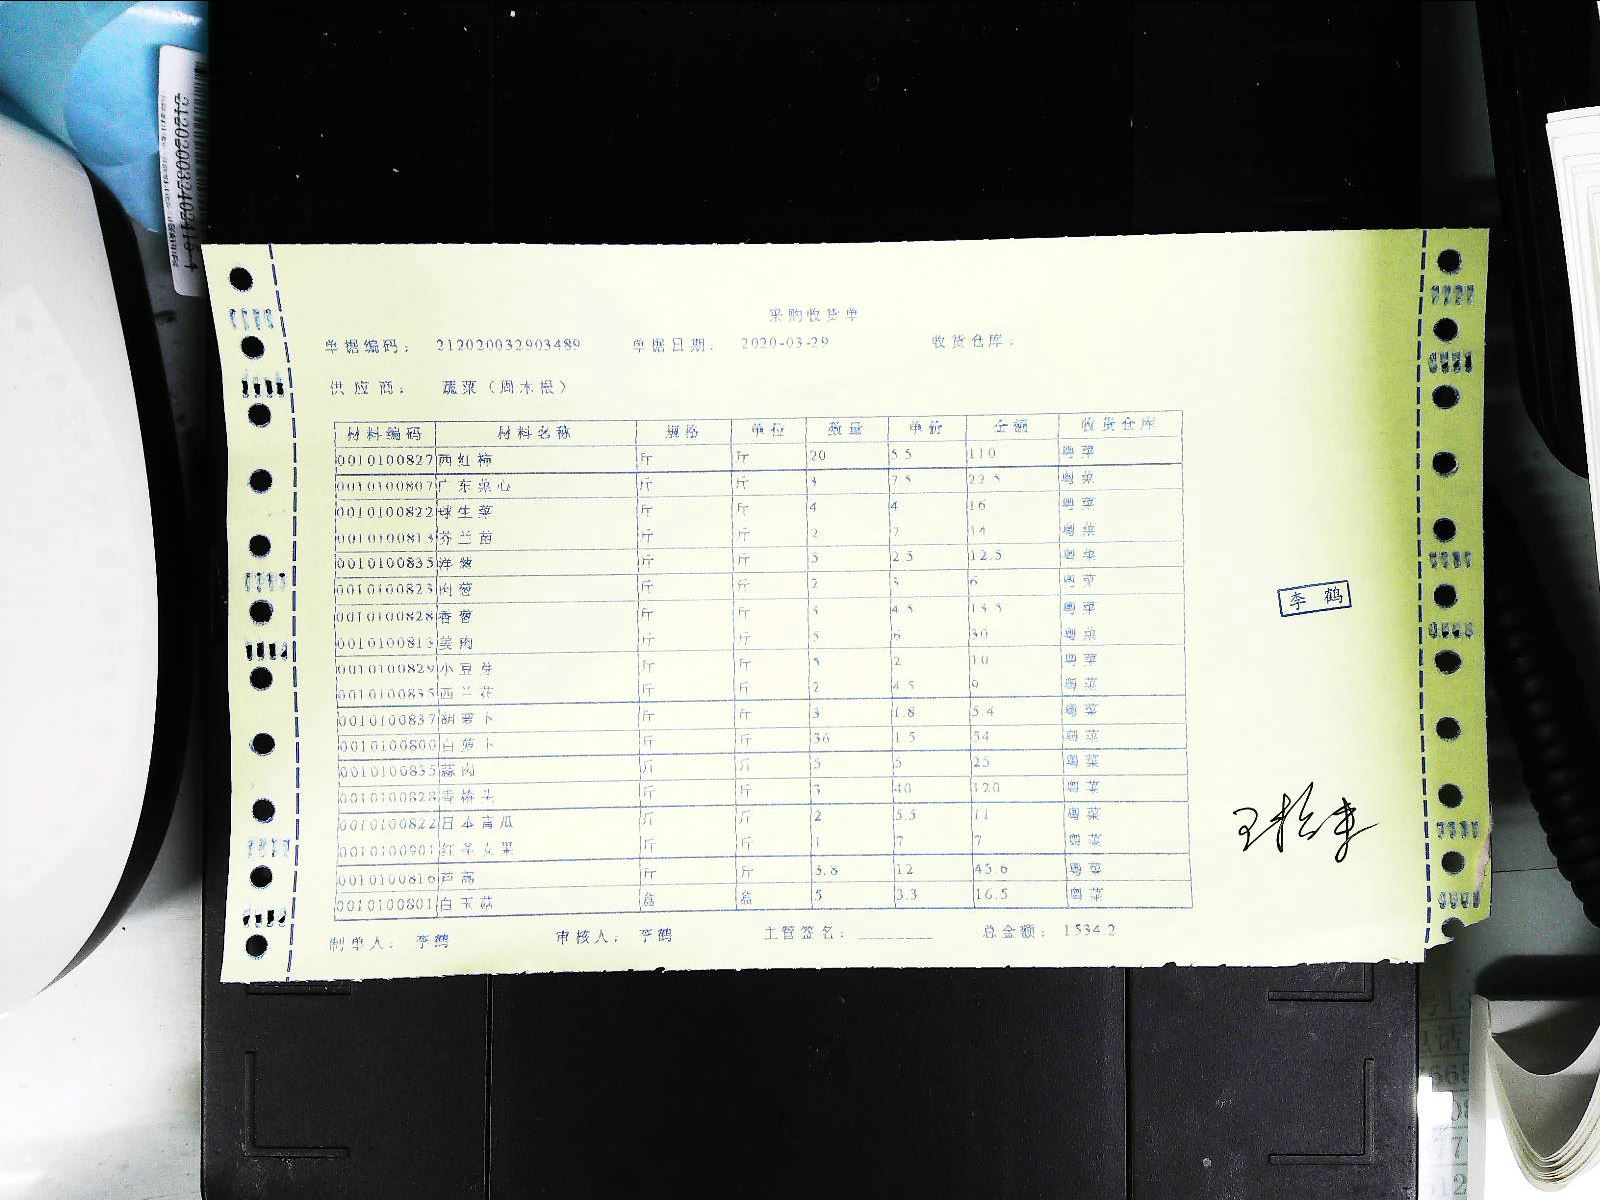 采购收货单
单据编码： 212020032903489 单据日期： 2020-03-29 收货仓库：
供应商： 蔬菜（周木根）
材料编码 材料名称 规格 单位 数量 单价 金额 收货仓库
0010100827 西红柿 斤 斤 20 5.5 110 粤菜
0010100807 广东菜心 斤 斤 3 7.5 22.5 粤菜
0010100822 球生菜 斤 斤 4 4 16 粤菜
0010100813 芥兰苗 斤 斤 2 7 14 粤菜
0010100835 洋葱 斤 斤 5 2.5 12.5 粤菜
0010100823 肉葱 斤 斤 2 3 6 粤菜
0010100828 香葱 斤 斤 3 4.5 13.5 粤菜
0010100813 姜肉 斤 斤 5 6 30 粤菜
0010100829 小豆芽 斤 斤 5 2 10 粤菜
0010100835 西兰花 斤 斤 2 4.5 9 粤菜
0010100837 胡萝卜 斤 斤 3 1.8 5.4 粤菜
0010100800 白萝卜 斤 斤 36 1.5 54 粤菜
0010100835 蒜肉 斤 斤 5 5 25 粤菜
0010100828 香椿头 斤 斤 3 40 120 粤菜
0010100822 日本青瓜 斤 斤 2 5.5 11 粤菜
0010100901 红圣女果 斤 斤 1 7 7 粤菜
0010100816 芦蒿 斤 斤 3.8 12 45.6 粤菜
0010100801 白玉菇 盒 盒 5 3.3 16.5 粤菜
制单人： 李鹤 审核人： 李鹤 主管签名：________ 总金额： 1534.2
李鹤